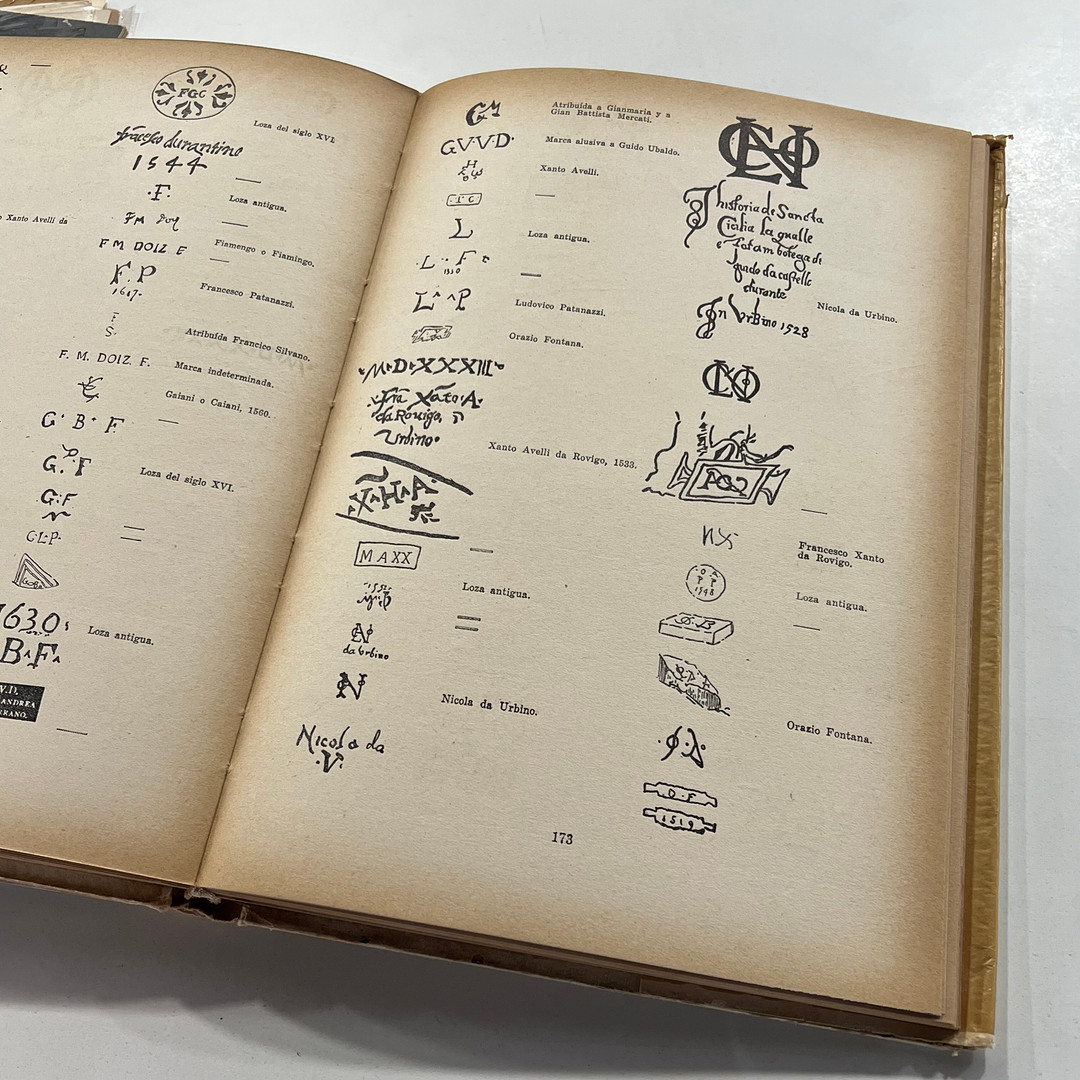 FGC
Loza del siglo XVI.
1544
·F·
Loza antigua.
Xanto Avelli da
F M DOIZ F
Fiamengo o Fiamingo.
F. P
1617·
Francesco Patanazzi.
Atribuída Francico Silvano.
F. M. DOIZ. F.
Marca indeterminada.
Gaiani o Caiani, 1560.
G· B· F
G. F
Loza del siglo XVI.
G:F
C·L·P·
1630
Loza antigua.
B·F·
V.D.
ANDREA
Atribuída a Gianmaria y a
Gian Battista Mercati.
GVVD·
Marca alusiva a Guido Ubaldo.
Xanto Avelli.
I C
L
Loza antigua.
L · · F
L P
Ludovico Patanazzi.
Orazio Fontana.
M·D·XXXIII
Fra Xãto·A·
da Rouigo,
Urbino·
Xanto Avelli da Rovigo, 1533.
·X·H·A·
MAXX
Loza antigua.
N
da Urbino
N
Nicola da Urbino.
Nicola da
·V·
historia de Sancta
Cicilia la qualle
e fata in botega di
guido da castello
durante
In Urbino 1528
Nicola da Urbino.
Francesco Xanto
da Rovigo.
Loza antigua.
Orazio Fontana.
O·F
1519
173